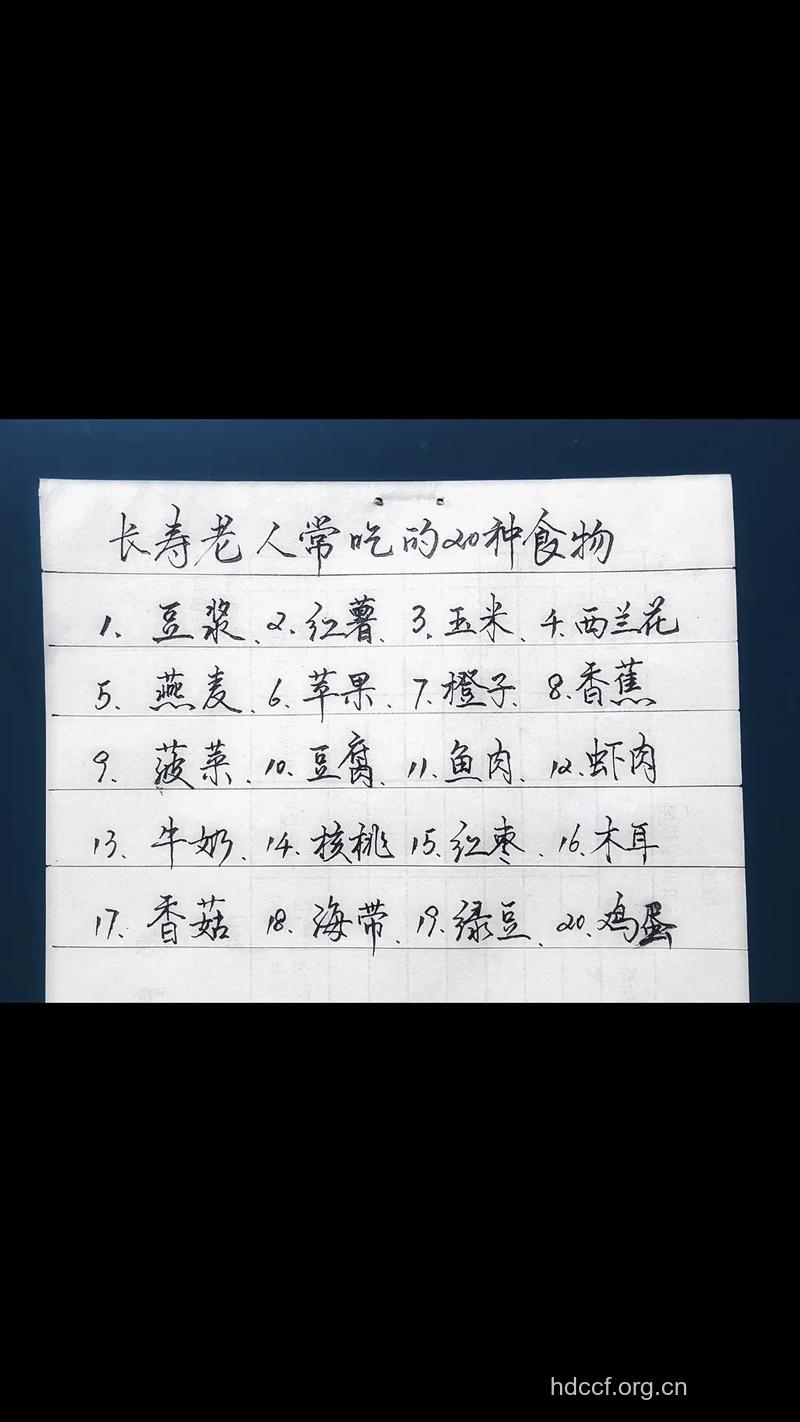 长寿老人常吃的20种食物
1. 豆浆、2. 红薯、3. 玉米、4. 西兰花
5. 燕麦、6. 苹果、7. 橙子、8. 香蕉
9. 菠菜、10. 豆腐、11. 鱼肉、12. 虾肉
13、牛奶、14. 核桃 15. 红枣、16. 木耳
17. 香菇 18. 海带、19. 绿豆、20. 鸡蛋
hdccf.org.cn